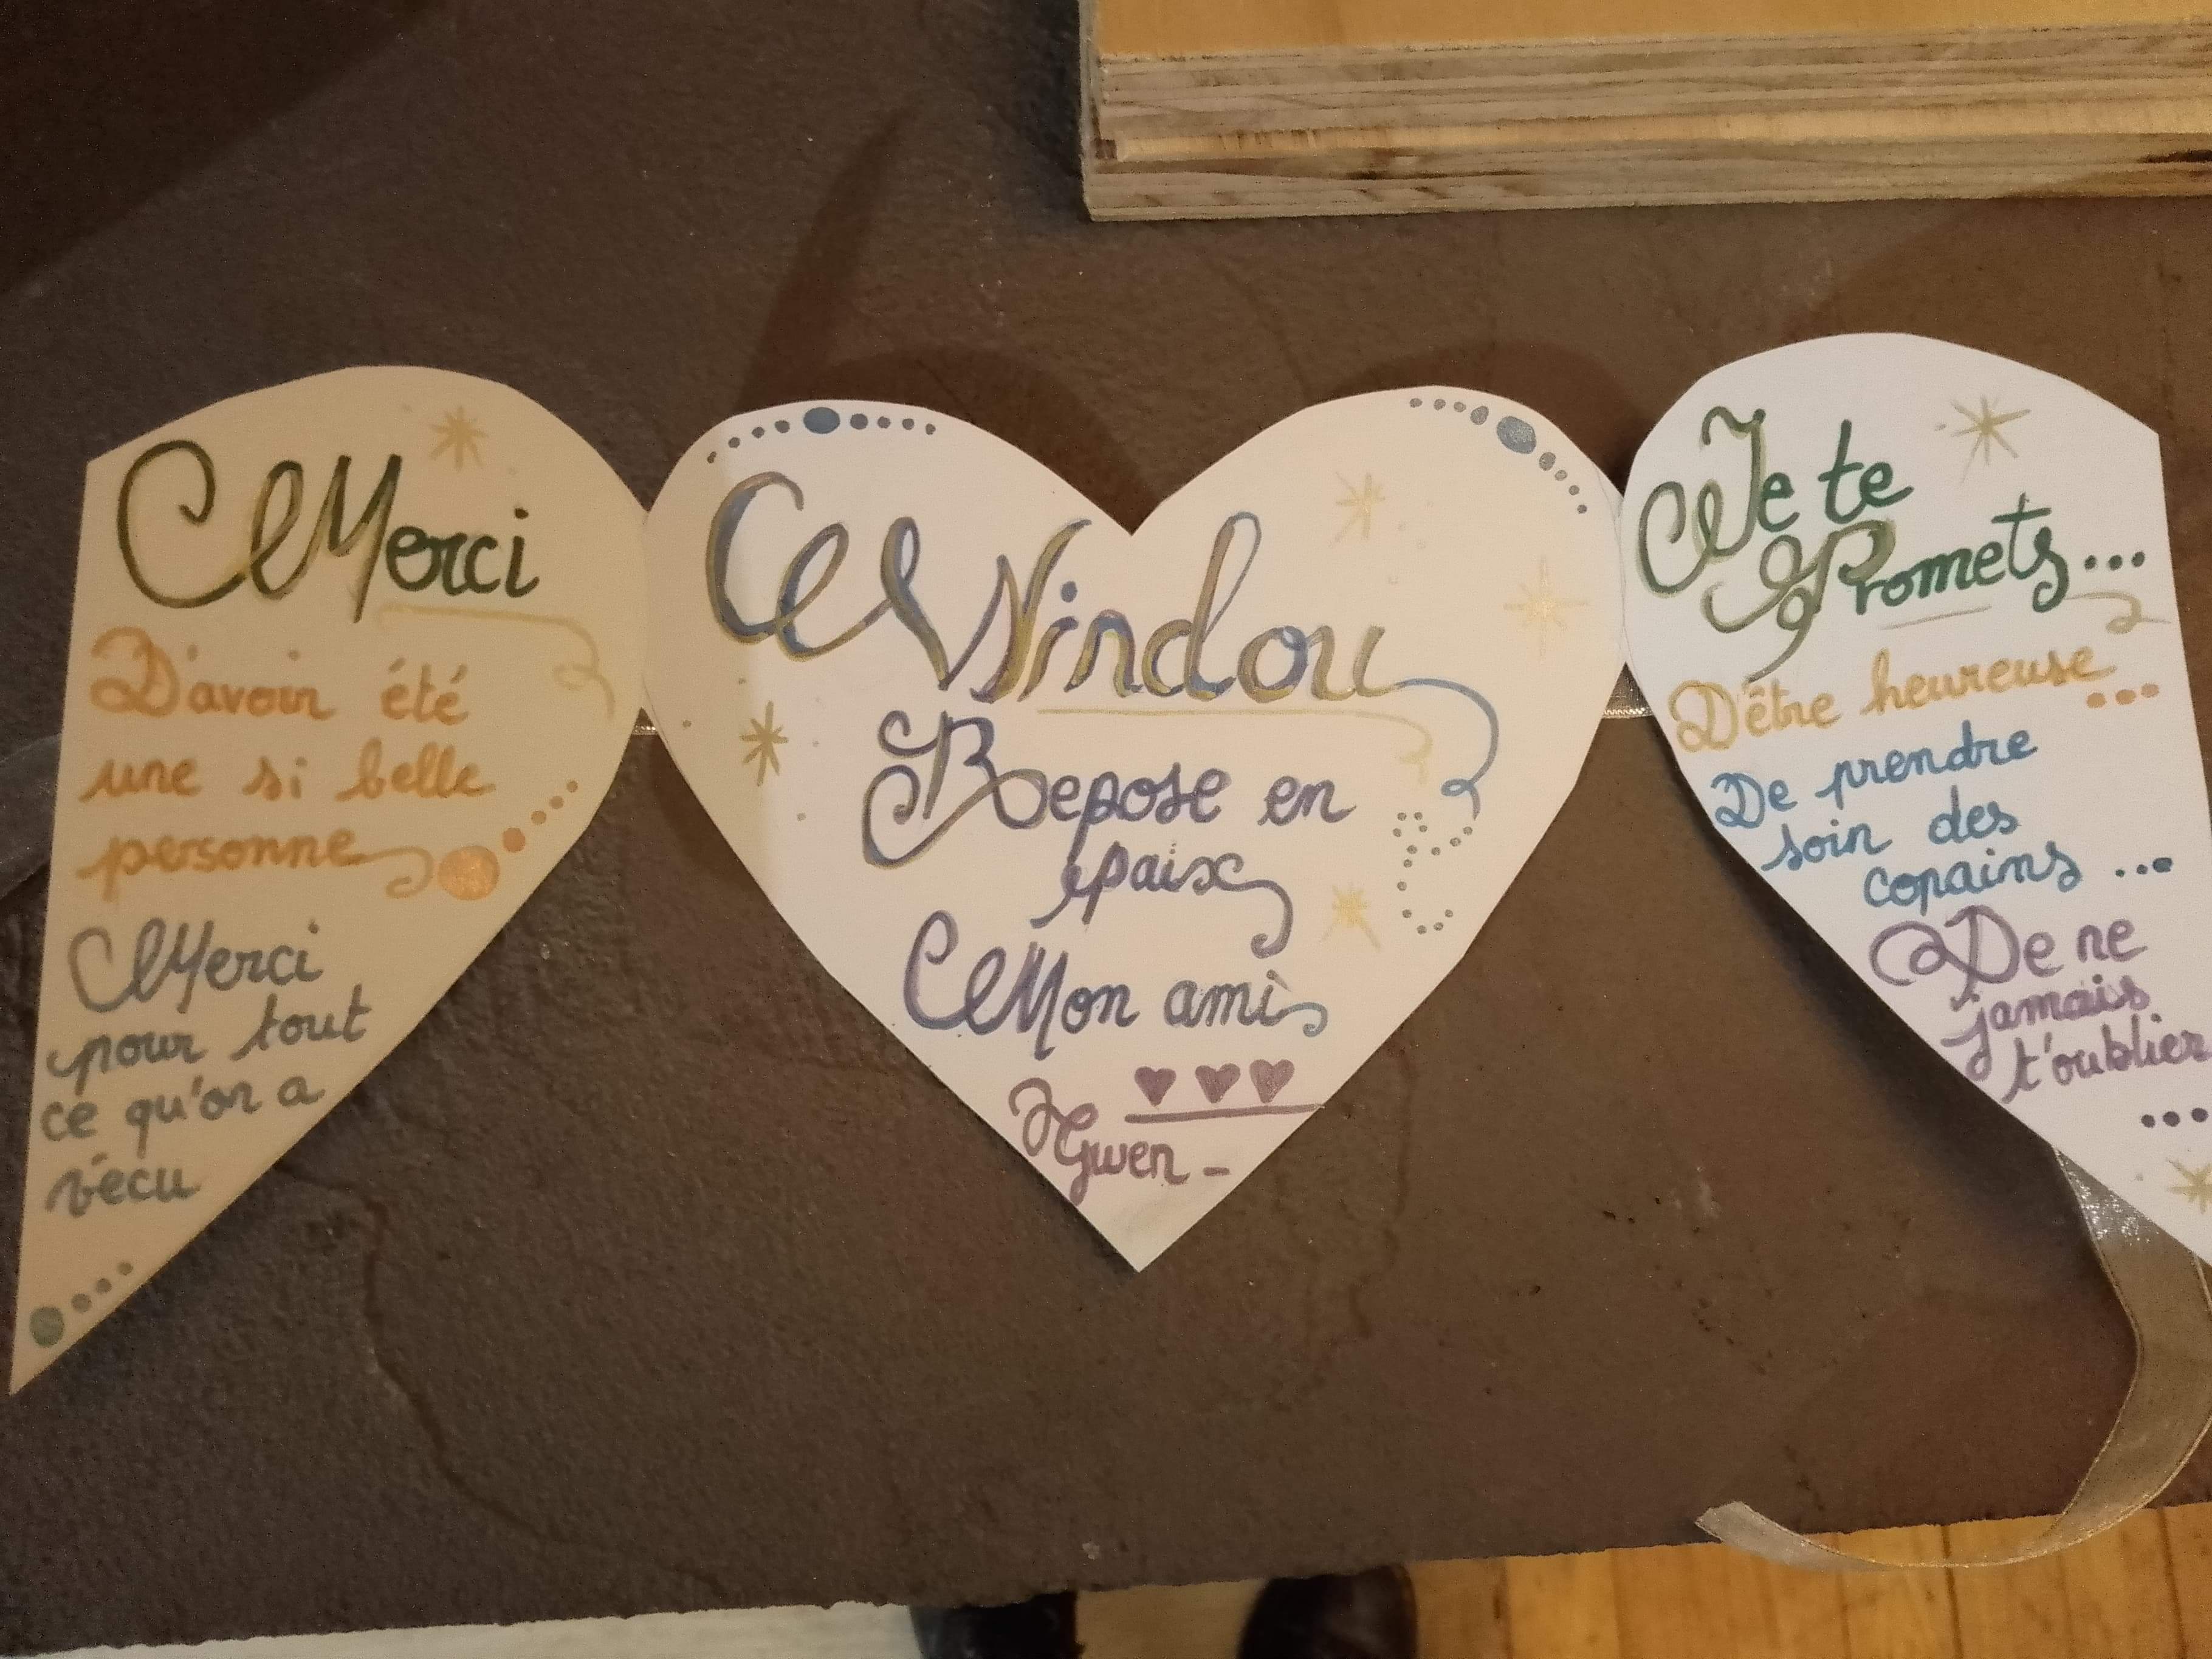 Merci
D'avoir été
une si belle
personne
Merci
pour tout
ce qu'on a
vécu
Windou
Repose en
paix
Mon ami
Gwen -
Je te
Promets...
D'être heureuse
...
De prendre
soin des
copains ...
De ne
jamais
t'oublier
...